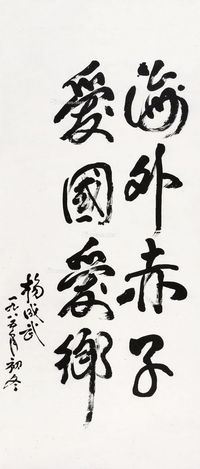 海外赤子
愛國愛鄉
楊成武
一九八五年初冬